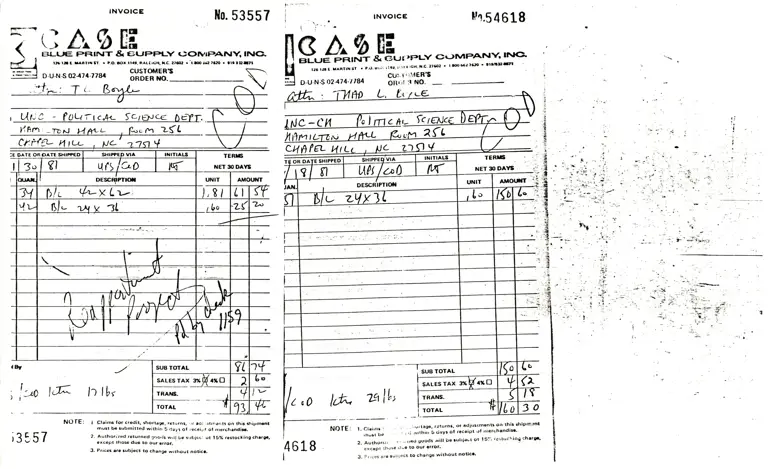 INVOICE
No. 53557
CASE
BLUE PRINT & SUPPLY COMPANY, INC.
126-128 E. MARTIN ST. • P.O. BOX 1148, RALEIGH, N.C. 27602 • 1 800 662 7620 • 919 832-8871
D-U-N-S 02-474-7784
CUSTOMER'S
ORDER NO.
COD
attn: T L Boyle
UNC - POLITICAL SCIENCE DEPT.
HAMILTON HALL, ROOM 256
CHAPEL HILL, NC 27514
DATE OR DATE SHIPPED SHIPPED VIA INITIALS TERMS
30 81 UPS/COD NET 30 DAYS
QUAN. DESCRIPTION UNIT AMOUNT
34 B/L 42 x 62 1.81 61 54
42 B/L 24 x 36 .60 25 20
Reapportionment
Project
Pd by check
1159
By
SUB TOTAL 86 74
SALES TAX 3% 4% 2 60
COD 17 lbs
TRANS. 4 12
TOTAL $93 46
NOTE: 1. Claims for credit, shortage, returns, or adjustments on this shipment
must be submitted within 5 days of receipt of merchandise.
2. Authorized returned goods will be subject to 15% restocking charge,
except those due to our error.
3. Prices are subject to change without notice.
53557
INVOICE
No. 54618
CASE
BLUE PRINT & SUPPLY COMPANY, INC.
D-U-N-S 02-474-7784
CUSTOMER'S
ORDER NO.
COD
attn: THAD L.
UNC-CH POLITICAL SCIENCE DEPT
HAMILTON HALL ROOM 256
CHAPEL HILL, NC 27514
TE OR DATE SHIPPED SHIPPED VIA INITIALS TERMS
18 81 UPS/COD NET 30 DAYS
UAN. DESCRIPTION UNIT AMOUNT
B/L 24 x 36 .60 150 60
SUB TOTAL 150 60
SALES TAX 3% 4% 4 52
COD 29 lbs
TRANS. 5 18
TOTAL $160 30
NOTE: 1. Claims shortage, returns, or adjustments on this shipment
must be within 5 days of receipt of merchandise.
2. goods will be subject to 15% restocking charge,
except those due to our error.
3. Prices are subject to change without notice.
4618